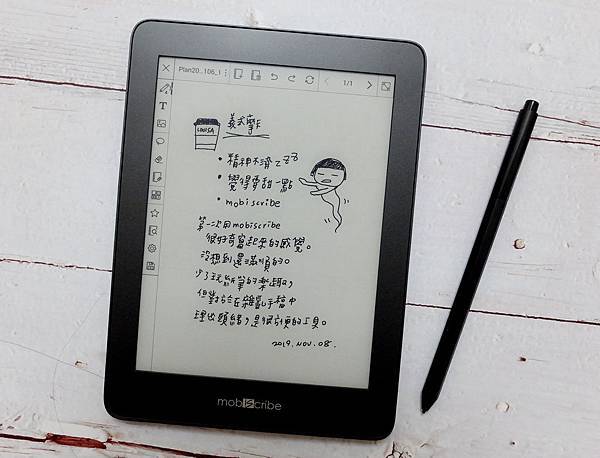 Plan20...106_1
1/1
T
LOUISA
義式摩卡
• 精神不濟 zzZZ
• 覺得要甜一點
• mobiscribe
第一次用mobiscribe
很好奇寫起來的感覺。
沒想到還滿順的。
少了玩紙筆的樂趣，
但對於在雜亂手稿中
理出頭緒，是很方便的工具。
2019. NOV. 08.
mobiscribe